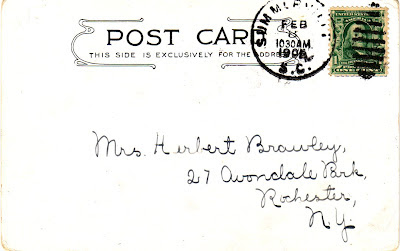 POST CARD
THIS SIDE IS EXCLUSIVELY FOR THE ADDRESS
FEB
10 30 AM
S.C.
Mrs. Herbert Brawley,
27 Avondale Park,
Rochester,
N.Y.